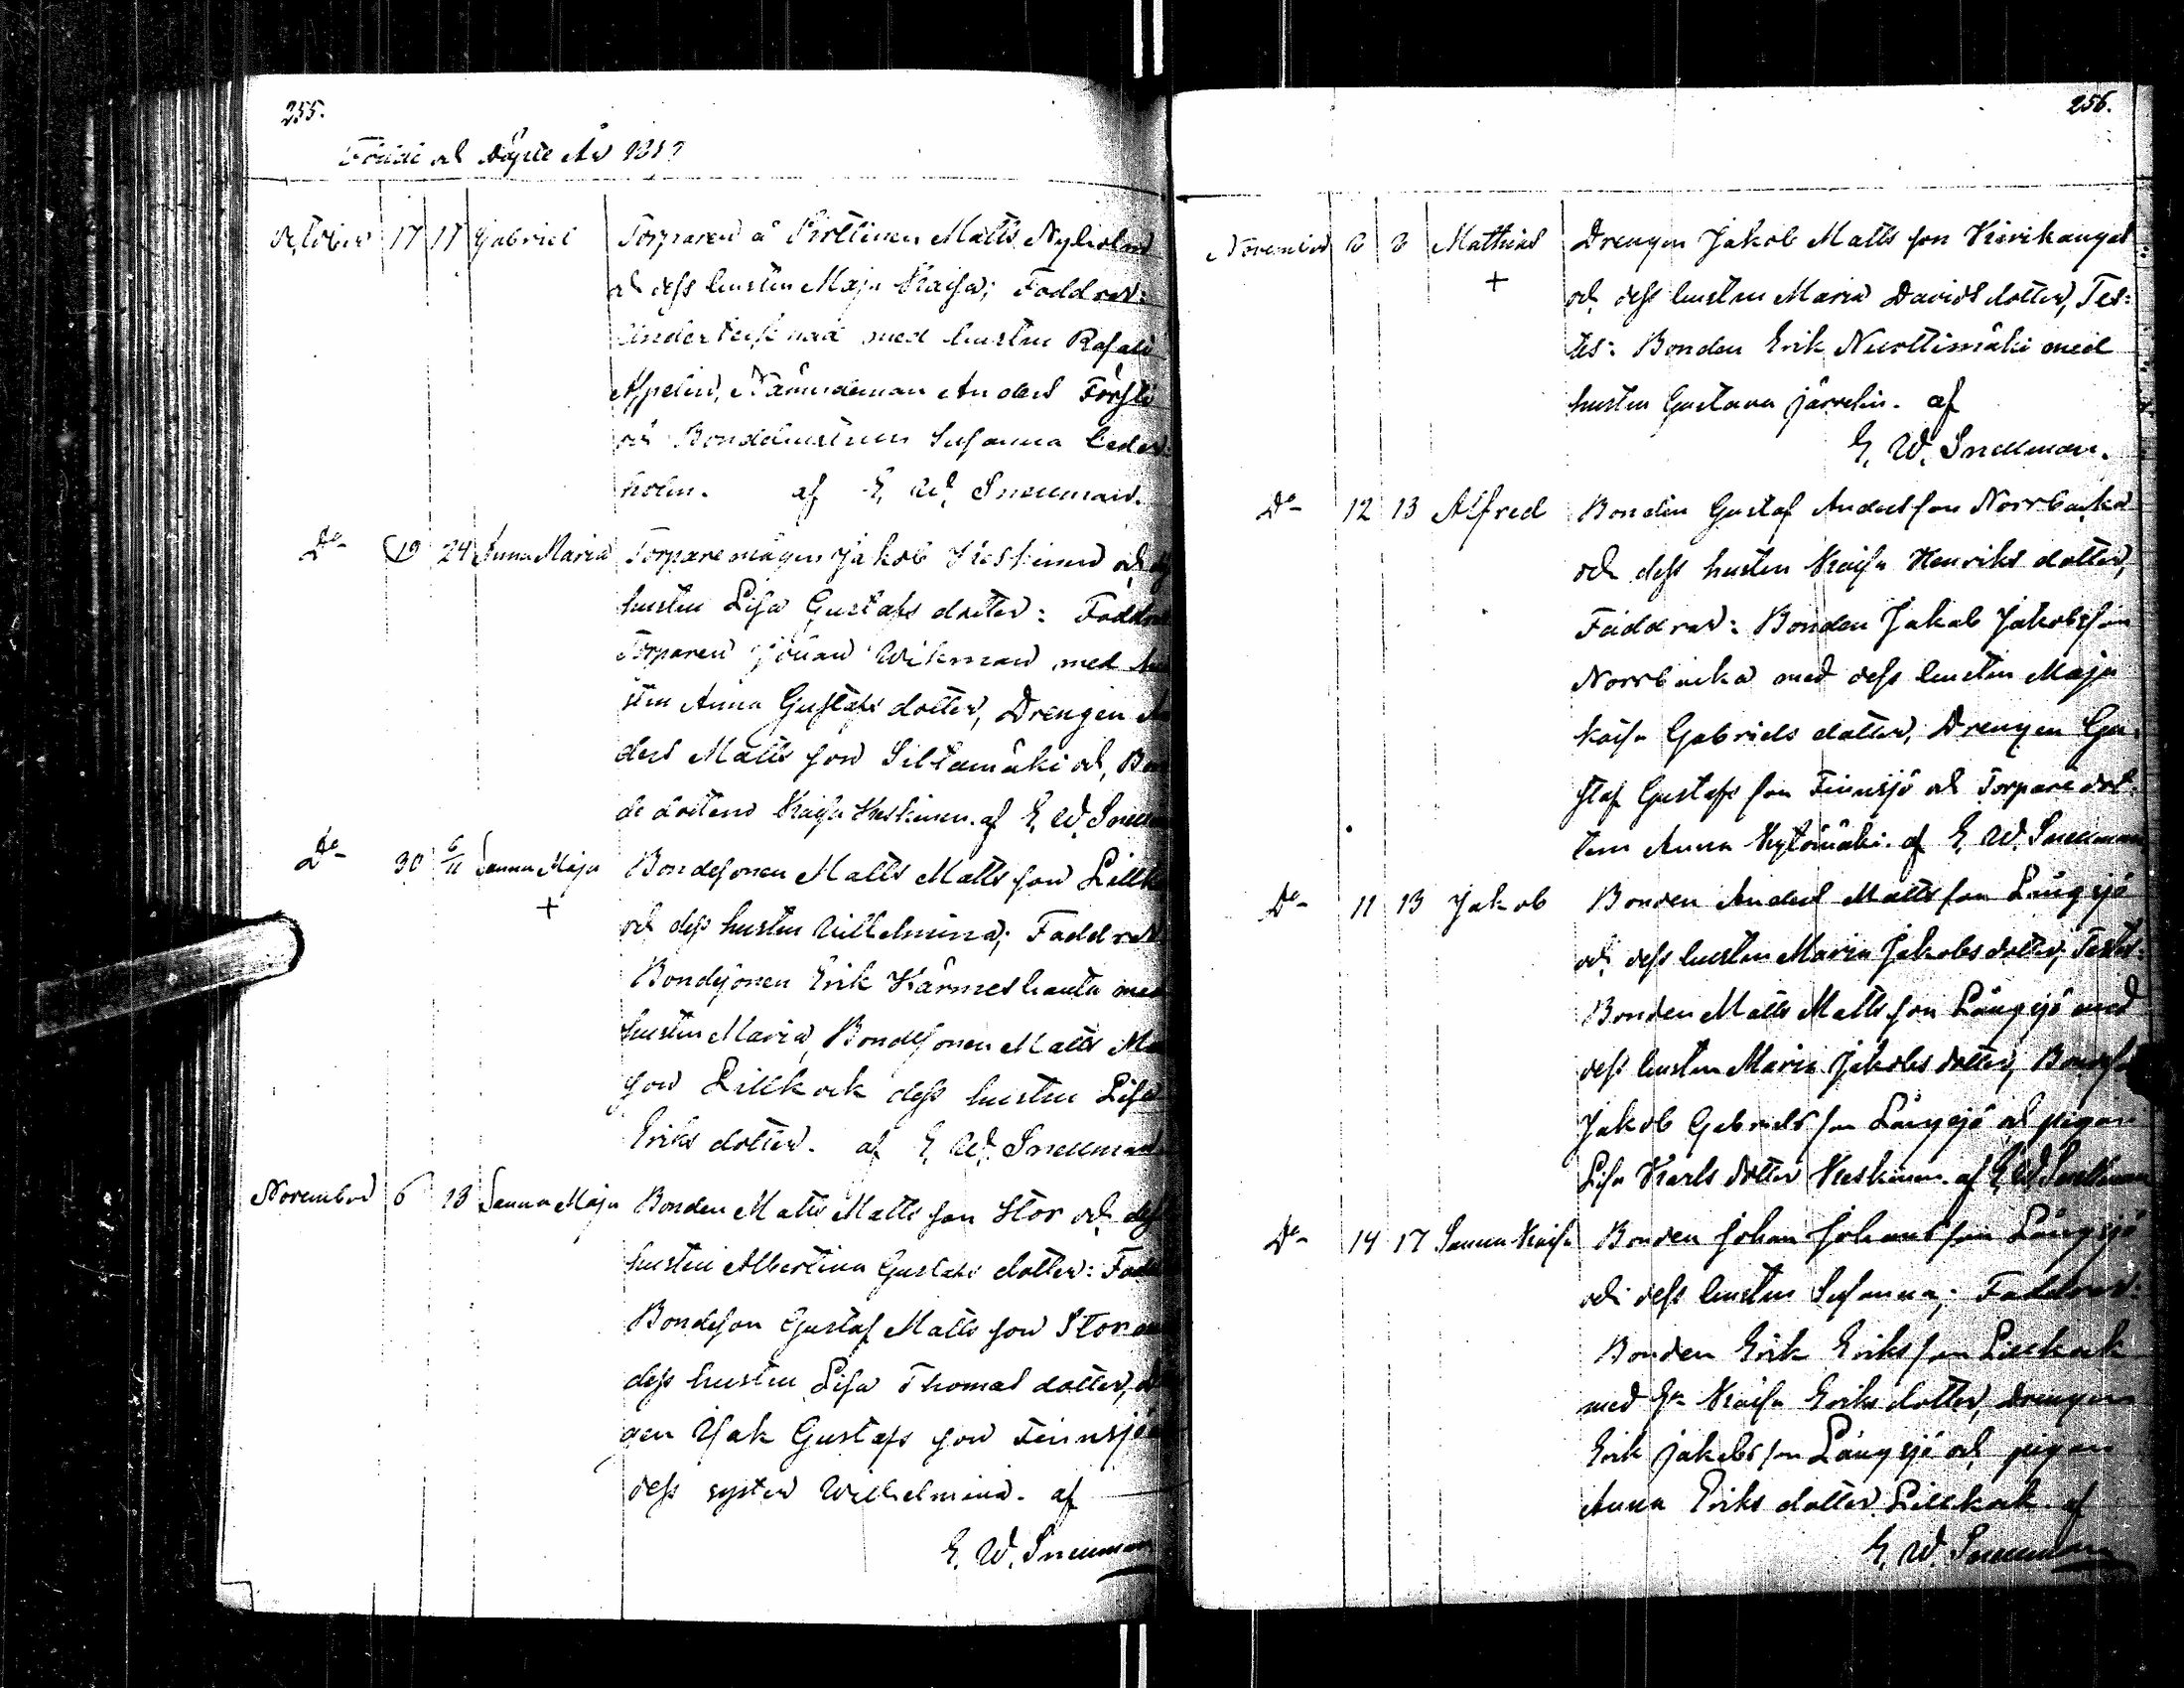 255.
Födde och Döpte År
October 17 17 Gabriel Torparen å Pirttinen Matts Nyholm
och dess hustru Maja Kaisa; Faddrar:
Undertecknad med hustru Rosali
Appelin, Nämndeman Anders Forsti
och Bondehustrun Susanna Ceder-
holm. af E. W. Snellman.
Do 19 24 Anna Maria Torparemågen Jakob Keskinen och
hustru Lisa Gustafs dotter: Faddrar
Torparen Johan Wikman med hu
stru Anna Gustafs dotter, Drengen An
ders Matts son Siltamäki och Bon
de dottern Kaisa Keskinen. af E. W. Snellman
Do 30 6/11 Sanna Maja Bondesonen Matts Matts son Lillk
+
och dess hustru Vilhelmina; Faddrar
Bondesonen Erik Kärmeshauta med
hustru Maria, Bondesonen Matts Ma
son Lillkock dess hustru Lisa
Eriks dotter. af E. W. Snellman
November 6 13 Sanna Maja Bonden Matts Matts son Stor och dess
hustru Albertina Gustafs dotter: Fadd
Bondeson Gustaf Matts son Stor
dess hustru Lisa Thomas dotter,
gen Isak Gustafs son Finnsjö
dess syster Wilhelmina. af
E. W. Snellman
256.
November Mathias Drengen Jakob Matts son Kivikangas
+
och dess hustru Maria Davids dotter, Tes-
tes: Bonden Erik Nurttimäki med
hustru Gustava Järvelin. af
E. W. Snellman.
Do 12 13 Alfred Bonden Gustaf Anders son Norrbacka
och dess hustru Kaisa Henriks dotter,
Faddrar: Bonden Jakob Jakobs son
Norrbacka med dess hustru Maja
Kaisa Gabriels dotter, Drengen Gu-
staf Gustafs son Finnsjö och Torpare dot-
tern Anna Kytömäki. af E. W. Snellman
Do 11 13 Jakob Bonden Anders Matts son Långsjö
och dess hustru Maria Jakobs dotter, Testes:
Bonden Matts Matts son Långsjö med
dess hustru Maria Jakobs dotter,
Jakob Gabriels son Långsjö och pigan
Lisa Karls dotter Keskinen. af E. W. Snellman
Do 14 17 Sanna Kaisa Bonden Johan Johans son Långsjö
och dess hustru Susanna; Faddrar:
Bonden Erik Eriks son Lillkock
med Kaisa Eriks dotter, Drengen
Erik Jakobs son Långsjö och pigan
Anna Eriks dotter Lillkock af
E. W. Snellman